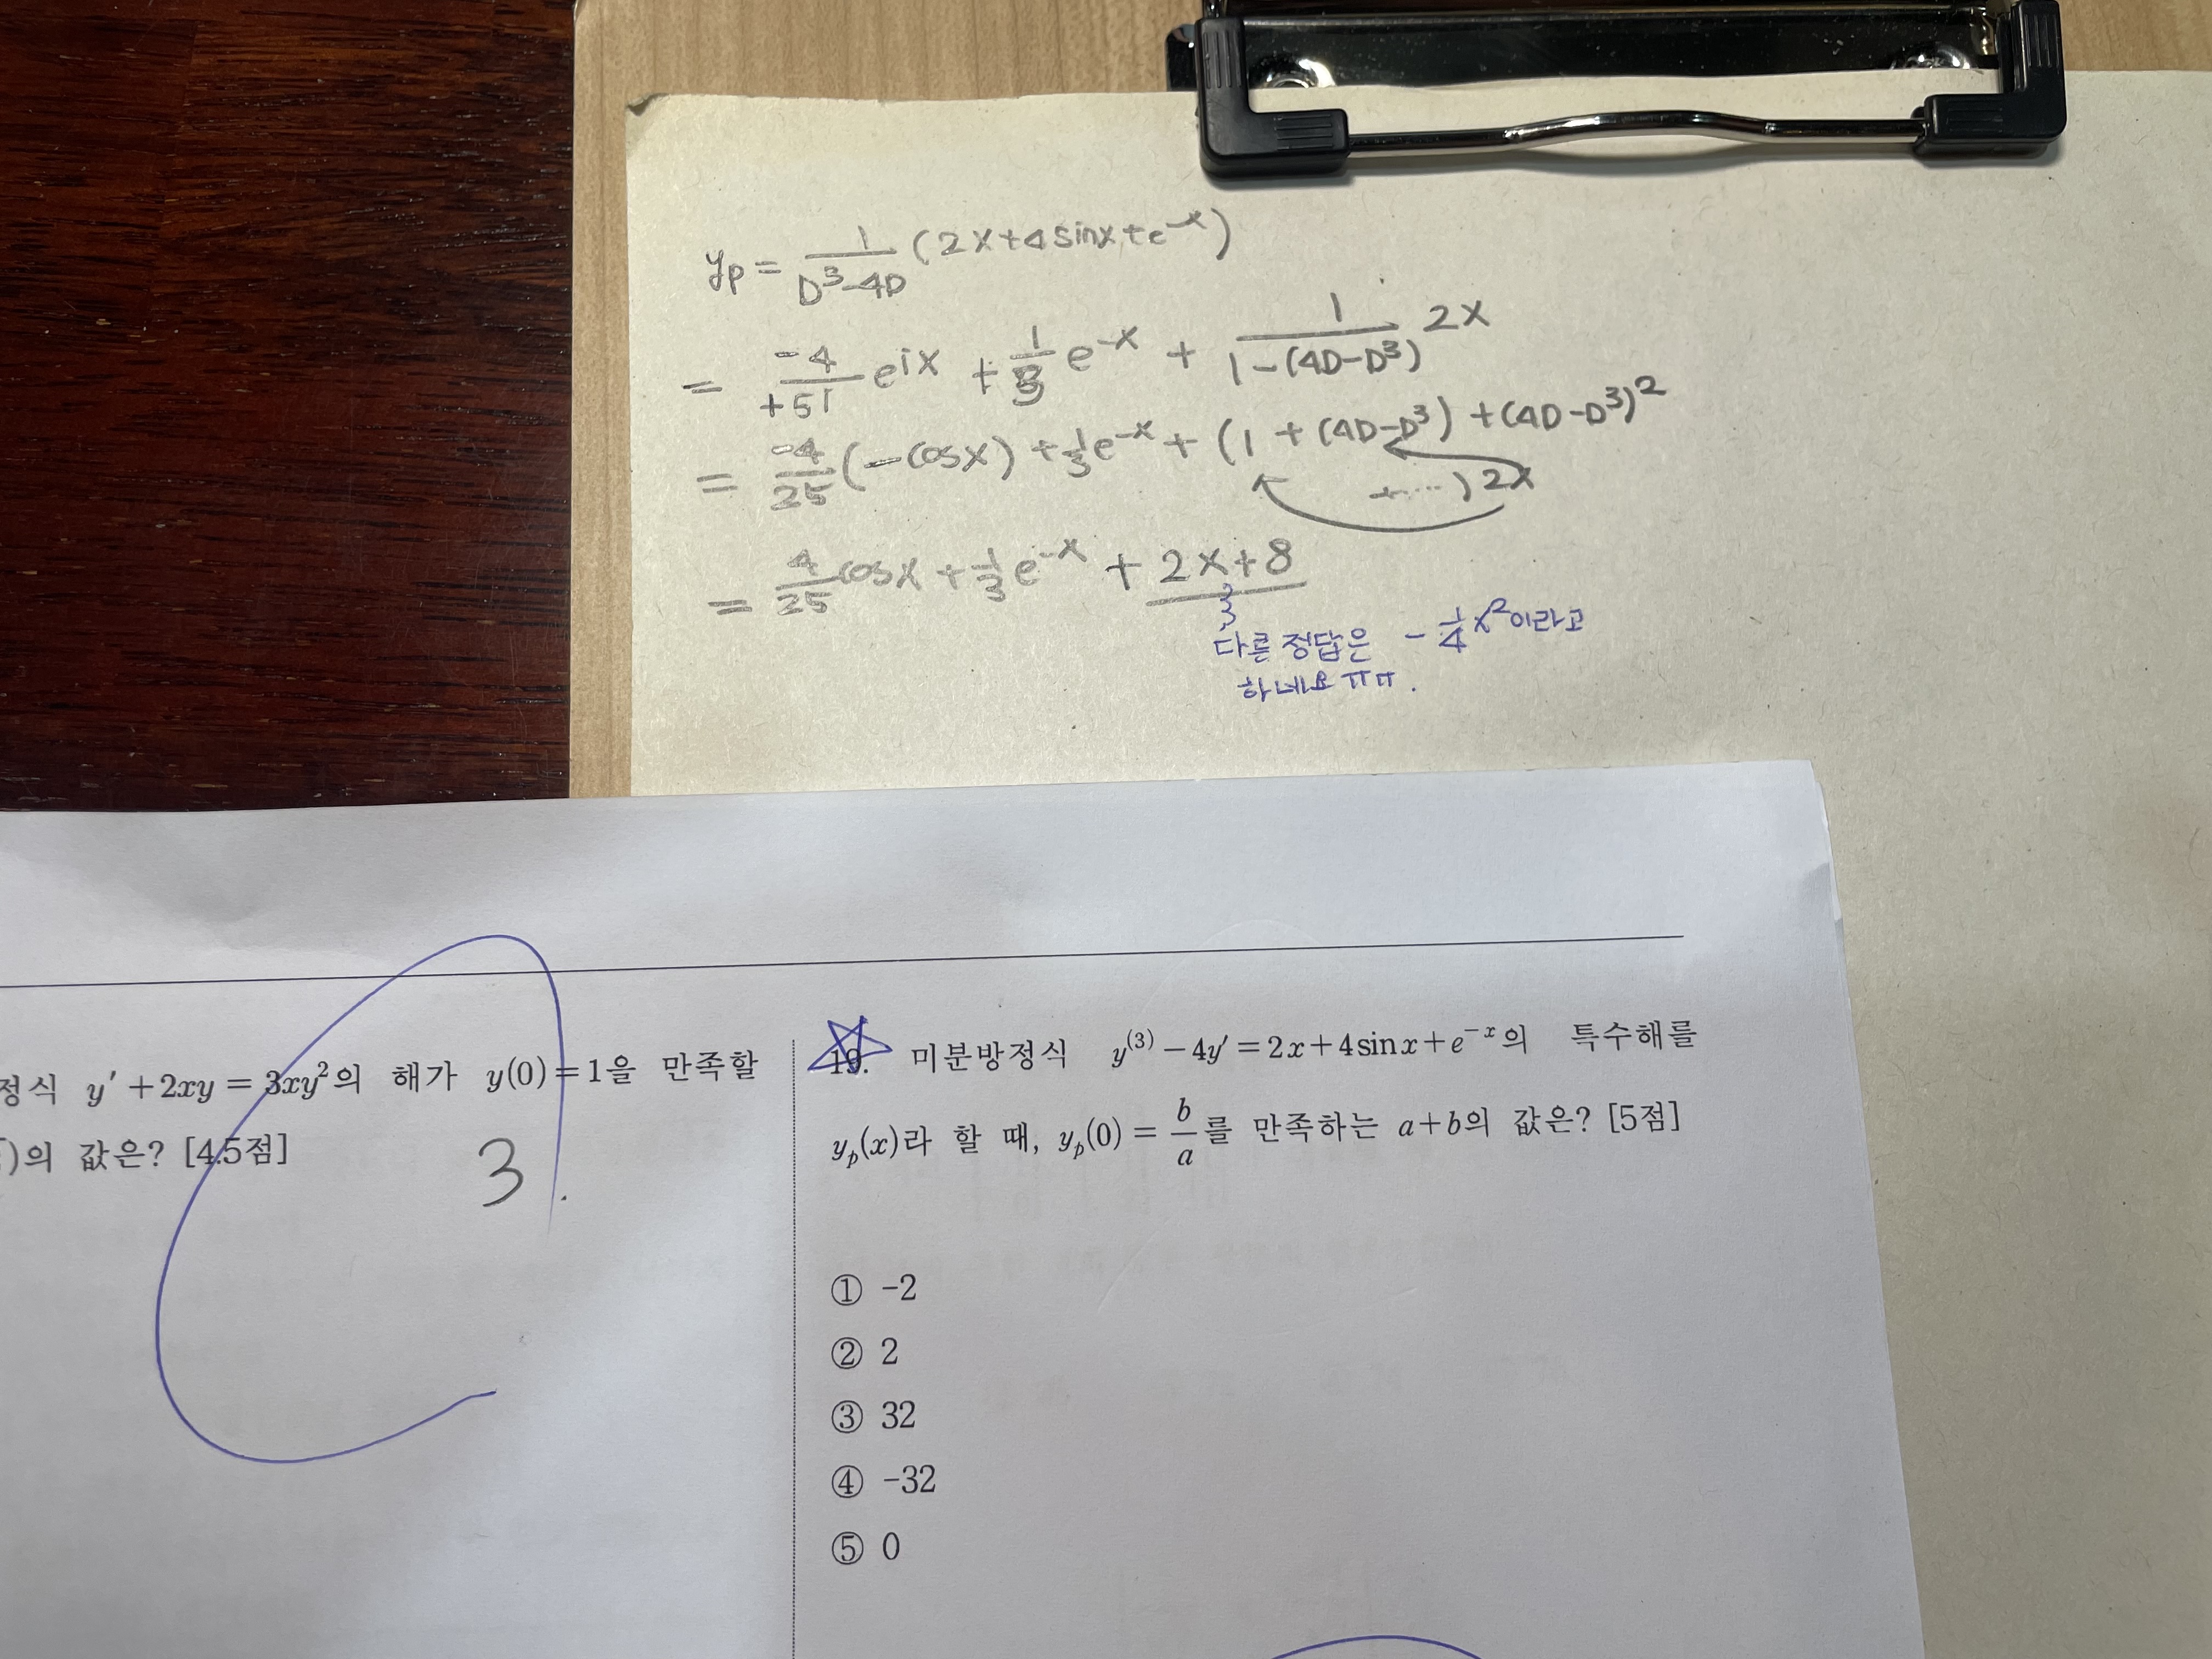 yp = 1/(D³-4D) (2x+4sinx+e^-x)
= -4/+5i e^ix + 1/3 e^-x + 1/(1-(4D-D³)) 2x
= -4/25 (-cosx) + 1/3 e^-x + (1 + (4D-D³) + (4D-D³)²
+ ····) 2x
= 4/25 cosx + 1/3 e^-x + 2x+8
다른 정답은 - 1/4 x² 이라고
하네요 ㅠㅠ.
정식 y′+2xy=3xy²의 해가 y(0)=1을 만족할
)의 값은? [4.5점]
3.
19. 미분방정식 y⁽³⁾-4y′=2x+4sinx+e^-x의 특수해를
y_p(x)라 할 때, y_p(0)= b/a를 만족하는 a+b의 값은? [5점]
① -2
② 2
③ 32
④ -32
⑤ 0